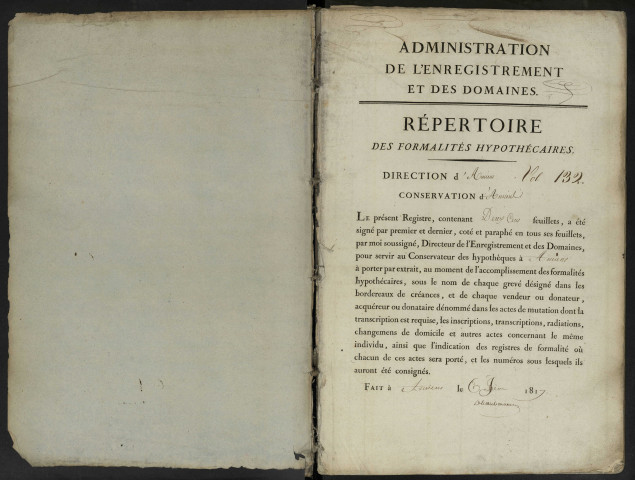 ADMINISTRATION
DE L'ENREGISTREMENT
ET DES DOMAINES.
RÉPERTOIRE
DES FORMALITÉS HYPOTHÉCAIRES.
DIRECTION d'Amiens Vol 132.
CONSERVATION d'Amiens
LE présent Registre, contenant Deux Cens feuillets, a été
signé par premier et dernier, coté et paraphé en tous ses feuillets,
par moi soussigné, Directeur de l'Enregistrement et des Domaines,
pour servir au Conservateur des hypothèques à Amiens
à porter par extrait, au moment de l'accomplissement des formalités
hypothécaires, sous le nom de chaque grevé désigné dans les
bordereaux de créances, et de chaque vendeur ou donateur,
acquéreur ou donataire dénommé dans les actes de mutation dont la
transcription est requise, les inscriptions, transcriptions, radiations,
changemens de domicile et autres actes concernant le même
individu, ainsi que l'indication des registres de formalité où
chacun de ces actes sera porté, et les numéros sous lesquels ils
auront été consignés.
FAIT à Amiens le 6 1817